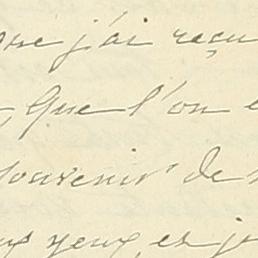 que j'ai reçu
, que l'on
souvenir de
yeux, et je